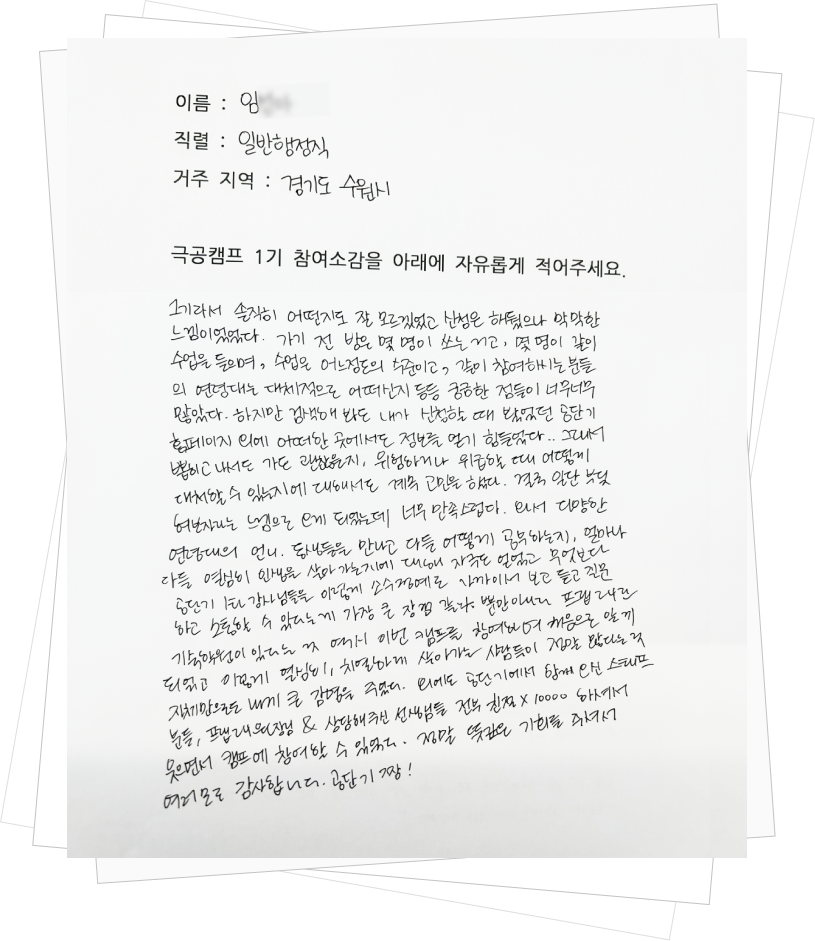 이름 : 임
직렬 : 일반행정직
거주 지역 : 경기도 수원시
극공캠프 1기 참여소감을 아래에 자유롭게 적어주세요.
1기라서 솔직히 어떤지도 잘 모르겠었고 신청은 해뒀으나 막막한
느낌이었었다. 가기 전 방은 몇 명이 쓰는거고, 몇 명이 같이
수업을 들으며, 수업은 어느정도의 수준이고, 같이 참여하시는 분들
의 연령대는 대체적으로 어떠신지 등등 궁금한 점들이 너무너무
많았다. 하지만 검색해 봐도 내가 신청할 때 봤었던 공단기
홈페이지 외에 어떠한 곳에서도 정보를 얻기 힘들었다.. 그래서
뽑히고 나서도 가도 괜찮을지, 위험하거나 위급할 때 어떻게
대처할 수 있을지에 대해서도 계속 고민을 했다. 결국 일단 부딪
혀보자라는 느낌으로 오게 되었는데 너무 만족스럽다. 와서 다양한
연령대의 언니, 동생들을 만나고 다들 어떻게 공부하는지, 얼마나
다들 열심히 인생을 살아가는지에 대해 자극도 얻었고 무엇보다
공단기 1타 강사님들을 이렇게 소수정예로 가까이서 보고 듣고 질문
하고 소통할 수 있다는게 가장 큰 장점 같다. 뿐만아니라 프랩
기숙학원이 있다는 것 역시 이번 캠프를 참여하며 처음으로 알게
되었고 이렇게 열심히, 치열하게 살아가는 사람들이 정말 많다는 것
자체만으로도 내게 큰 감명을 주었다. 외에도 공단기에서 함께 오신 스태프
분들, 프랩 & 상담해주신 선생님들 전부 친절 x 10000 하셔서
웃으면서 캠프에 참여할 수 있었다. 정말 뜻깊은 기회를 주셔서
여러모로 감사합니다. 공단기 짱!